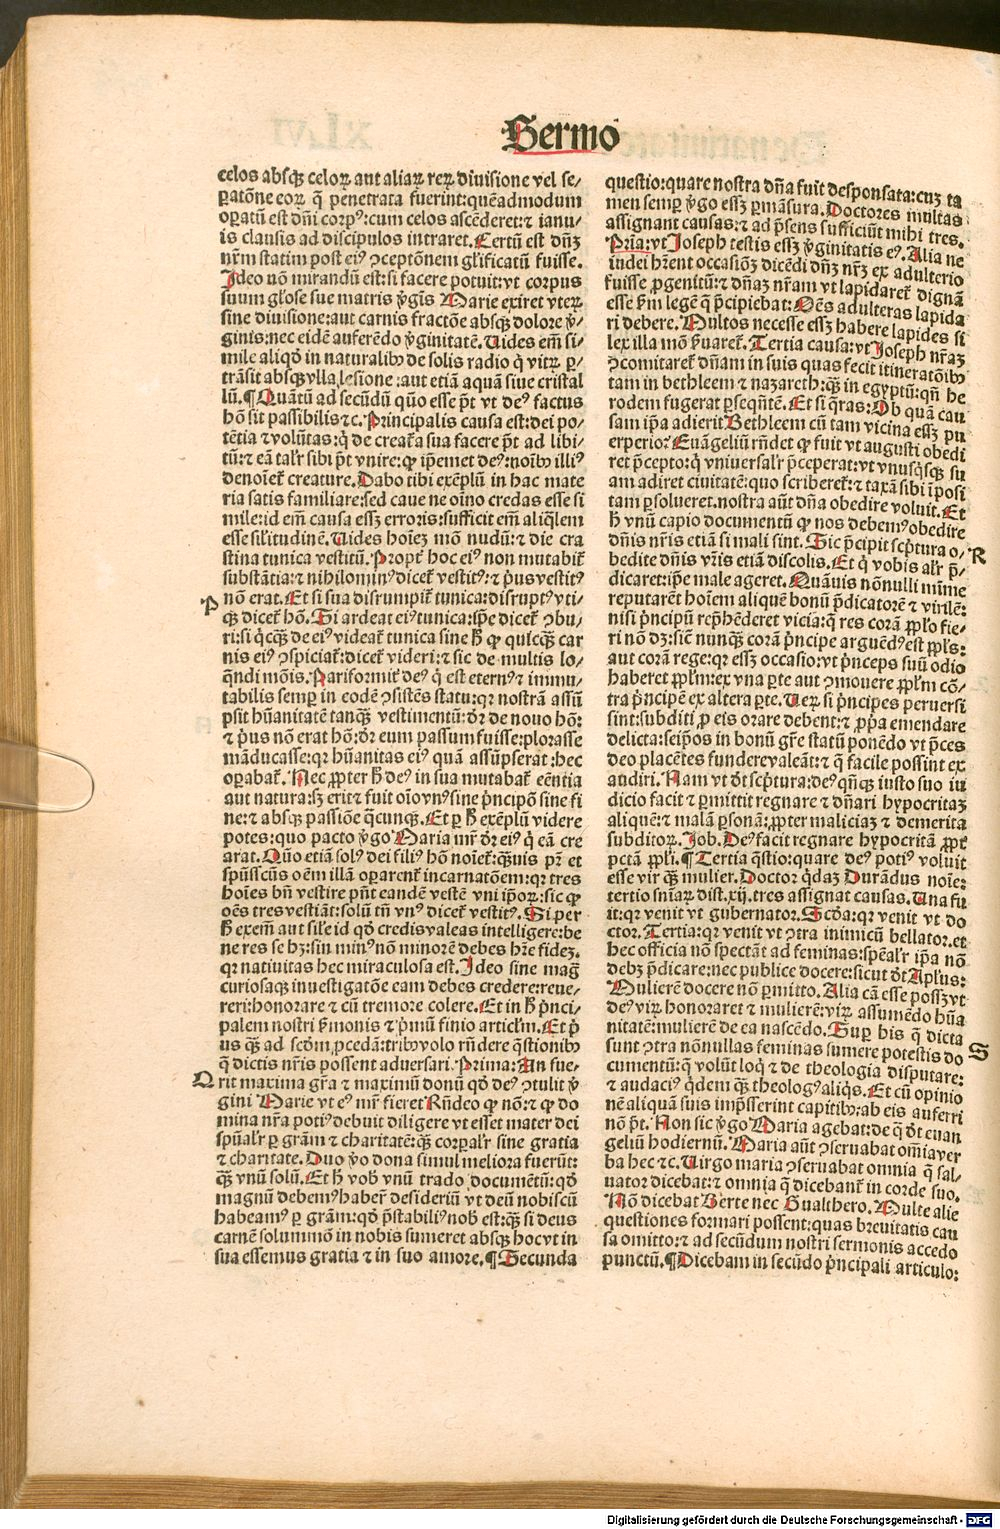 Sermo
celos absqꝫ celoꝝ aut aliaꝝ reꝝ diuisione vel se⸗
ꝑatõne eoꝝ q̄ penetrata fuerint:quēadmodum
oꝑatū est dn̄i corpꝰ:cum celos ascēderet:⁊ ianu⸗
is clausis ad discipulos intraret. Certū est dn̄ꝫ
nr̄m statim post eiꝰ ꝯceptōnem gl'ificatū fuisse.
Ideo nō mirandū est:si facere potuit:vt corpus
suum gl'ose sue matris v̄gīs Marie exiret vteꝝ
sine diuisione:aut carnis fractōe absqꝫ dolore v̄⸗
ginis:nec eidē auferēdo v̄ginitatē. Uides em̄ si⸗
mile aliqd̄ in naturalibꝫ de solis radio q̇ vitꝝ ꝑ⸗
trāsit absqꝫ vlla lesione:aut etiā aquā siue cristal
lū.¶Quātū ad secūdū quō esse p̄t vt deꝰ factus
hō sit passibilis ⁊c. Principalis causa est:dei po⸗
tētia ⁊ volūtas:q̇ de creat̄a sua facere p̄t ad libi⸗
tū:⁊ eā tal'r sibi p̄t vnire:ꝙ ip̄emet deꝰ:noībꝫ illiꝰ
denoīet̄ creature. Dabo tibi exēplū in hac mate
ria satis familiare:sed caue ne oīno credas esse si
mile:id em̄ causa essꝫ erroris:sufficit em̄ aliq̄lem
esse sil'itudinē. Uides hoīeꝫ mō nudū:⁊ die cra
stina tunica vestitū. Propt̄ hoc eiꝰ non mutabit̄
substātia:⁊ nihilominꝰ dicet̄ vestitꝰ:⁊ p̄us vestitꝰ
P
nō erat. Et si sua disrumpit̄ tunica:disruptꝰ vti⸗
qꝫ dicet̄ hō. Si ardeat eiꝰ tunica:ip̄e dicet̄ ꝯbu⸗
ri:si q̇cqꝫ de eiꝰ videat̄ tunica sine h̄ ꝙ quicqꝫ car
nis eiꝰ ꝯspiciat̄:dicet̄ videri:⁊ sic de multis lo⸗
q̄ndi mōis. Pariformit̄ deꝰ q̇ est eternꝰ ⁊ immu⸗
tabilis semꝑ in eodē ꝯsistēs statu:qr nostrā assū
psit hūanitatē tanqꝫ vestimentū:dr̄ de nouo hō:
⁊ p̄us nō erat hō:dr̄ eum passum fuisse:plorasse
māducasse:qr hūanitas eiꝰ quā assūpserat:hec
oꝑabat̄. Nec ꝓpter h̄ deꝰ in sua mutabat̄ eēntia
aut natura:sꝫ erit ⁊ fuit oīo vnꝰ sine p̄ncipō sine fi
ne:⁊ absqꝫ passiōe q̄cunqꝫ. Et ꝑ h̄ exēplū videre
potes:quo pacto v̄go Maria mr̄ dr̄ eiꝰ q̇ eā cre
arat. Quō etiā solꝰ dei filiꝰ hō noīet̄:qꝫuis pr̄ et
spūssctūs oēm illā oꝑarent̄ incarnatōem:qr tres
hoīes bn̄ vestire pn̄t eandē vestē vni ip̄oꝝ:sic ꝙ
oēs tres vestiāt:solū tn̄ vnꝰ dicet̄ vestitꝰ. Si per
h̄ exem̄ aut sil'e id qd̄ credis valeas intelligere:be
ne res se hꝫ:sin minꝰ nō minorē debes hr̄e fideꝫ.
qr natiuitas hec miraculosa est. Ideo sine mag̃
curiosaqꝫ inuestigatōe eam debes credere:reue⸗
reri:honorare ⁊ cū tremore colere. Et in h̄ p̄nci⸗
palem nostri s̄monis ⁊ p̄mū finio articl'm. Et p̄
us qꝫ ad scd̄m ꝓcedā:tribꝫ volo rn̄dere q̄stionibꝫ
q̄ dictis nr̄is possent aduersari. Prima: An fue⸗
Q
rit maxima gr̄a ⁊ maximū donū qd̄ deꝰ ꝯtulit v̄
gini Marie vt eꝰ mr̄ fieret Rn̄deo ꝙ nō:⁊ ꝙ do
mina nr̄a potiꝰ debuit diligere vt esset mater dei
spūal'r ꝑ gr̄am ⁊ charitatē:qꝫ corꝑal'r sine gratia
⁊ charitate. Duo v̄o dona simul meliora fuerūt:
qꝫ vnū solū. Et h̄ vob̄ vnū trado documētū:qd̄
magnū debemꝰ haber̄ desideriū vt deū nobiscū
habeamꝰ ꝑ gr̄am:qd̄ p̄stabiliꝰ nob̄ est:qꝫ si deus
carnē solummō in nobis sumeret absqꝫ hoc vt in
sua essemus gratia ⁊ in suo amore.¶Secunda
questio:quare nostra dn̄a fuit desponsata:cuꝫ ta
men semꝑ v̄go essꝫ ꝑmāsura. Doctores multas
assignant causas:⁊ ad p̄sens sufficiūt mihi tres.
Pria:vt Ioseph testis essꝫ v̄ginitatis eꝰ. Alia ne
iudei hr̄ent occasiōꝫ dicēdi dn̄ꝫ nr̄ꝫ ex adulterio
fuisse ꝓgenitū:⁊ dn̄aꝫ nr̄am vt lapidaret̄ dignā
esse s̄m legē q̄ p̄cipiebat:Oēs adulteras lapida
ri debere. Multos necesse essꝫ habere lapides si
lex illa mō s̄uaret̄. Tertia causa:vt Ioseph nr̄aꝫ
ꝯcomitaret̄ dn̄am in suis quas fecit itineratōibꝫ
tam in bethleem ⁊ nazareth:qꝫ in egyptū:qn̄ he
rodem fugerat ꝑseqn̄tē. Et si q̄ras:Ob quā cau
sam ip̄a adierit Bethleem cū tam vicina essꝫ pu
erperio:Euāgeliū rn̄det ꝙ fuit vt augusti obedi
ret p̄cepto:q̇ vniuersal'r p̄ceperat:vt vnusq̇sqꝫ su
am adiret ciuitatē:quo scriberet̄:⁊ taxā sibi īposi
tam ꝑsolueret. nostra aūt dn̄a obedire voluit. Et
h̄ vnū capio documentū ꝙ nos debemꝰ obedire
dn̄is nr̄is etiā si mali sint. Sic p̄cipit scp̄tura o⸗
R
bedite dn̄is vr̄is etiā discolis. Et q̇ vobis al'r p̄⸗
dicaret:ip̄e male ageret. Quāuis nōnulli mīme
reputarēt hoīem aliquē bonū p̄dicatorē ⁊ virilē:
nisi p̄ncipū rep̄hēderet vicia:q̄ res corā ꝓpl'o fie⸗
ri nō dꝫ:sic̄ nunqꝫ corā p̄ncipe arguēdꝰ est ꝓpl's:
aut corā rege:qr essꝫ occasio:vt p̄nceps suū odio
haberet ꝓpl'm:ex vna ꝑte aut ꝯmouere ꝓpl'm cō⸗
tra p̄ncipē ex altera ꝑte. Ueꝝ si p̄ncipes peruersi
sint:subditi ꝓ eis orare debent:⁊ ꝓp̄a emendare
delicta:seip̄os in bonū gr̄e statū ponēdo vt p̄ces
deo placētes fundere valeāt:⁊ q̄ facile possint ex
audiri. Nam vt dt̄ scp̄tura:deꝰ qn̄qꝫ iusto suo iu
dicio facit ⁊ ꝑmittit regnare ⁊ dn̄ari hypocritaꝫ
aliquē:⁊ malā ꝑsonā:ꝓpter maliciaꝫ ⁊ demerita
subditoꝝ. Job. Deꝰ facit regnare hypocritā ꝓpt̄
pctā ꝓpl'i.¶Tertia q̄stio:quare deꝰ potiꝰ voluit
esse vir qꝫ mulier. Doctor q̇daꝫ Durādus noīe:
tertio sn̄iaꝝ dist.xij. tres assignat causas. Una fu
it:qr venit vt gubernator. Scd̄a:qr venit vt do
ctor. Tertia:qr venit vt ꝯtra inimicū bellator. et
hec officia nō spectāt ad feminas:spēal'r ip̄a nō
debꝫ p̄dicare:nec publice docere:sicut dt̄ Apl'us:
Mulierē docere nō ꝑmitto. Alia cā esse possꝫ vt
deꝰ viꝝ honoraret ⁊ mulierē:viꝝ assumēdo hūa
nitatē:mulierē de ea nascēdo. Suꝑ his q̄ dicta
sunt ꝯtra nōnullas feminas sumere potestis do
S
cumentū:q̄ volūt loq̇ ⁊ de theologia disputare:
⁊ audaciꝰ q̇dem qꝫ theologꝰ aliq̇s. Et cū opinio
nē aliquā suis imp̄sserint capitibꝫ:ab eis auferri
nō p̄t. Non sic v̄go Maria agebat:de q̄ dt̄ euan
geliū hodiernū. Maria aūt ꝯseruabat om̄ia ver
ba hec ⁊c. Uirgo maria ꝯseruabat omnia q̄ sal⸗
uator dicebat:⁊ omnia q̄ dicebant̄ in corde suo.
Nō dicebat Berte nec Gualthero. Multe alie
questiones formari possent:quas breuitatis cau
sa omitto:⁊ ad secūdum nostri sermonis accedo
punctū.¶Dicebam in secūdo p̄ncipali articulo:
Digitalisierung gefördert durch die Deutsche Forschungsgemeinschaft - DFG